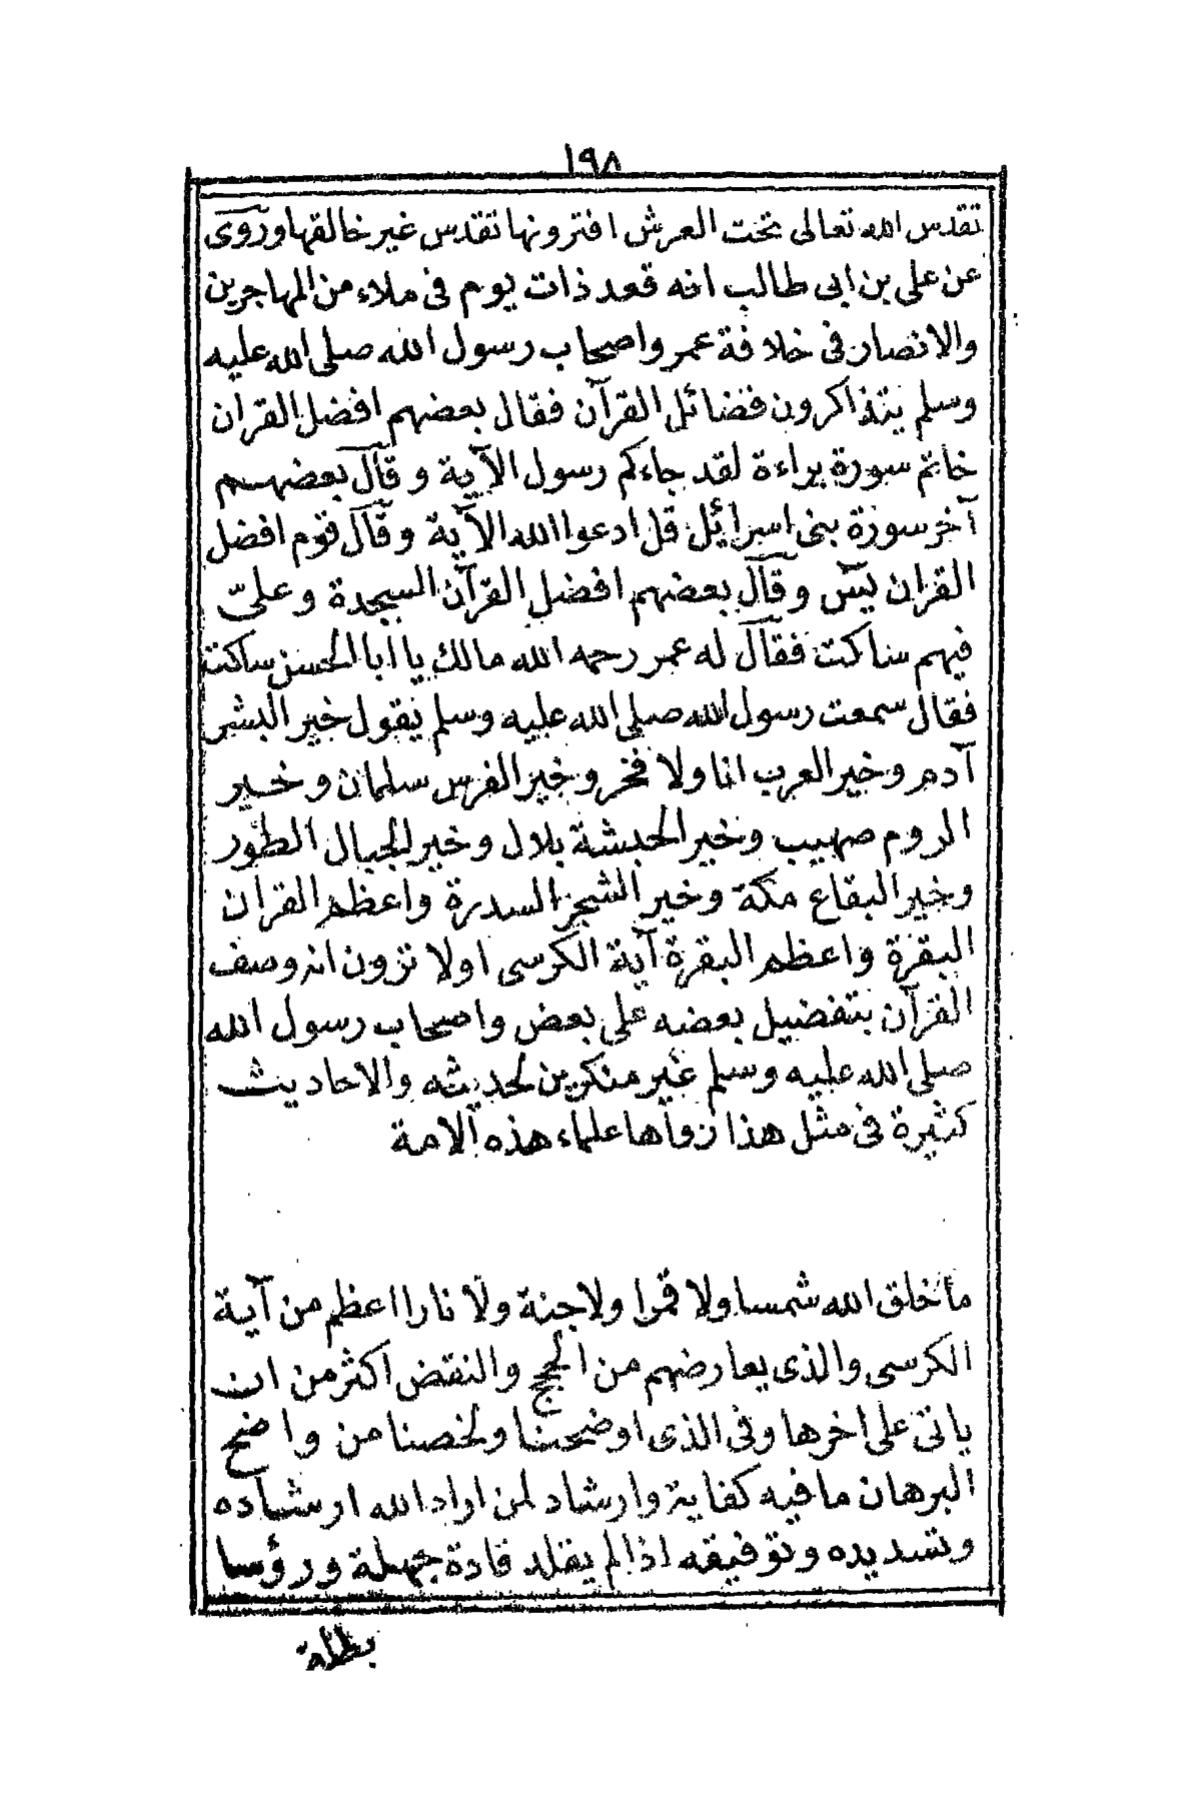 ١٩٨
تقدس الله تعالى تحت العرش افترونها تقدس غير خالقها وروى
عن علي بن ابى طالب انه قعد ذات يوم فى ملاء من المهاجرين
والانصار فى خلافة عمر واصحاب رسول الله صلى الله عليه
وسلم يتذاكرون فضائل القرآن فقال بعضهم افضل القران
خاتم سورة براءة لقد جاءكم رسول الآية وقال بعضهم
آخر سورة بنى اسرائيل قل ادعوا الله الآية وقال قوم افضل
القران يس وقال بعضهم افضل القرآن السجدة وعلىّ
فيهم ساكت فقال له عمر رحمه الله مالك يا ابا الحسن ساكت
فقال سمعت رسول الله صلى الله عليه وسلم يقول خير البشر
آدم وخير العرب انا ولا فخر وخير الفرس سلمان وخير
الروم صهيب وخير الحبشة بلال وخير الجبال الطور
وخير البقاع مكة وخير الشجر السدرة واعظم القران
البقرة واعظم البقرة آية الكرسى اولا ترون انه وصف
القرآن بتفضيل بعضه على بعض واصحاب رسول الله
صلى الله عليه وسلم غير منكرين لحديثه والاحاديث
كثيرة فى مثل هذا رواها علماء هذه الامة
ما خلق الله شمسا ولا قمرا ولا جنة ولا نارا اعظم من آية
الكرسى والذى يعارضهم من الحجج والنقض اكثر من ان
ياتى على اخرها وفى الذى اوضحنا ولخصنا من واضح
البرهان ما فيه كفاية وارشاد لمن اراد الله ارشاده
وتسديده وتوفيقه اذا لم يقلد قادة جهلة ورؤسا
بطلة